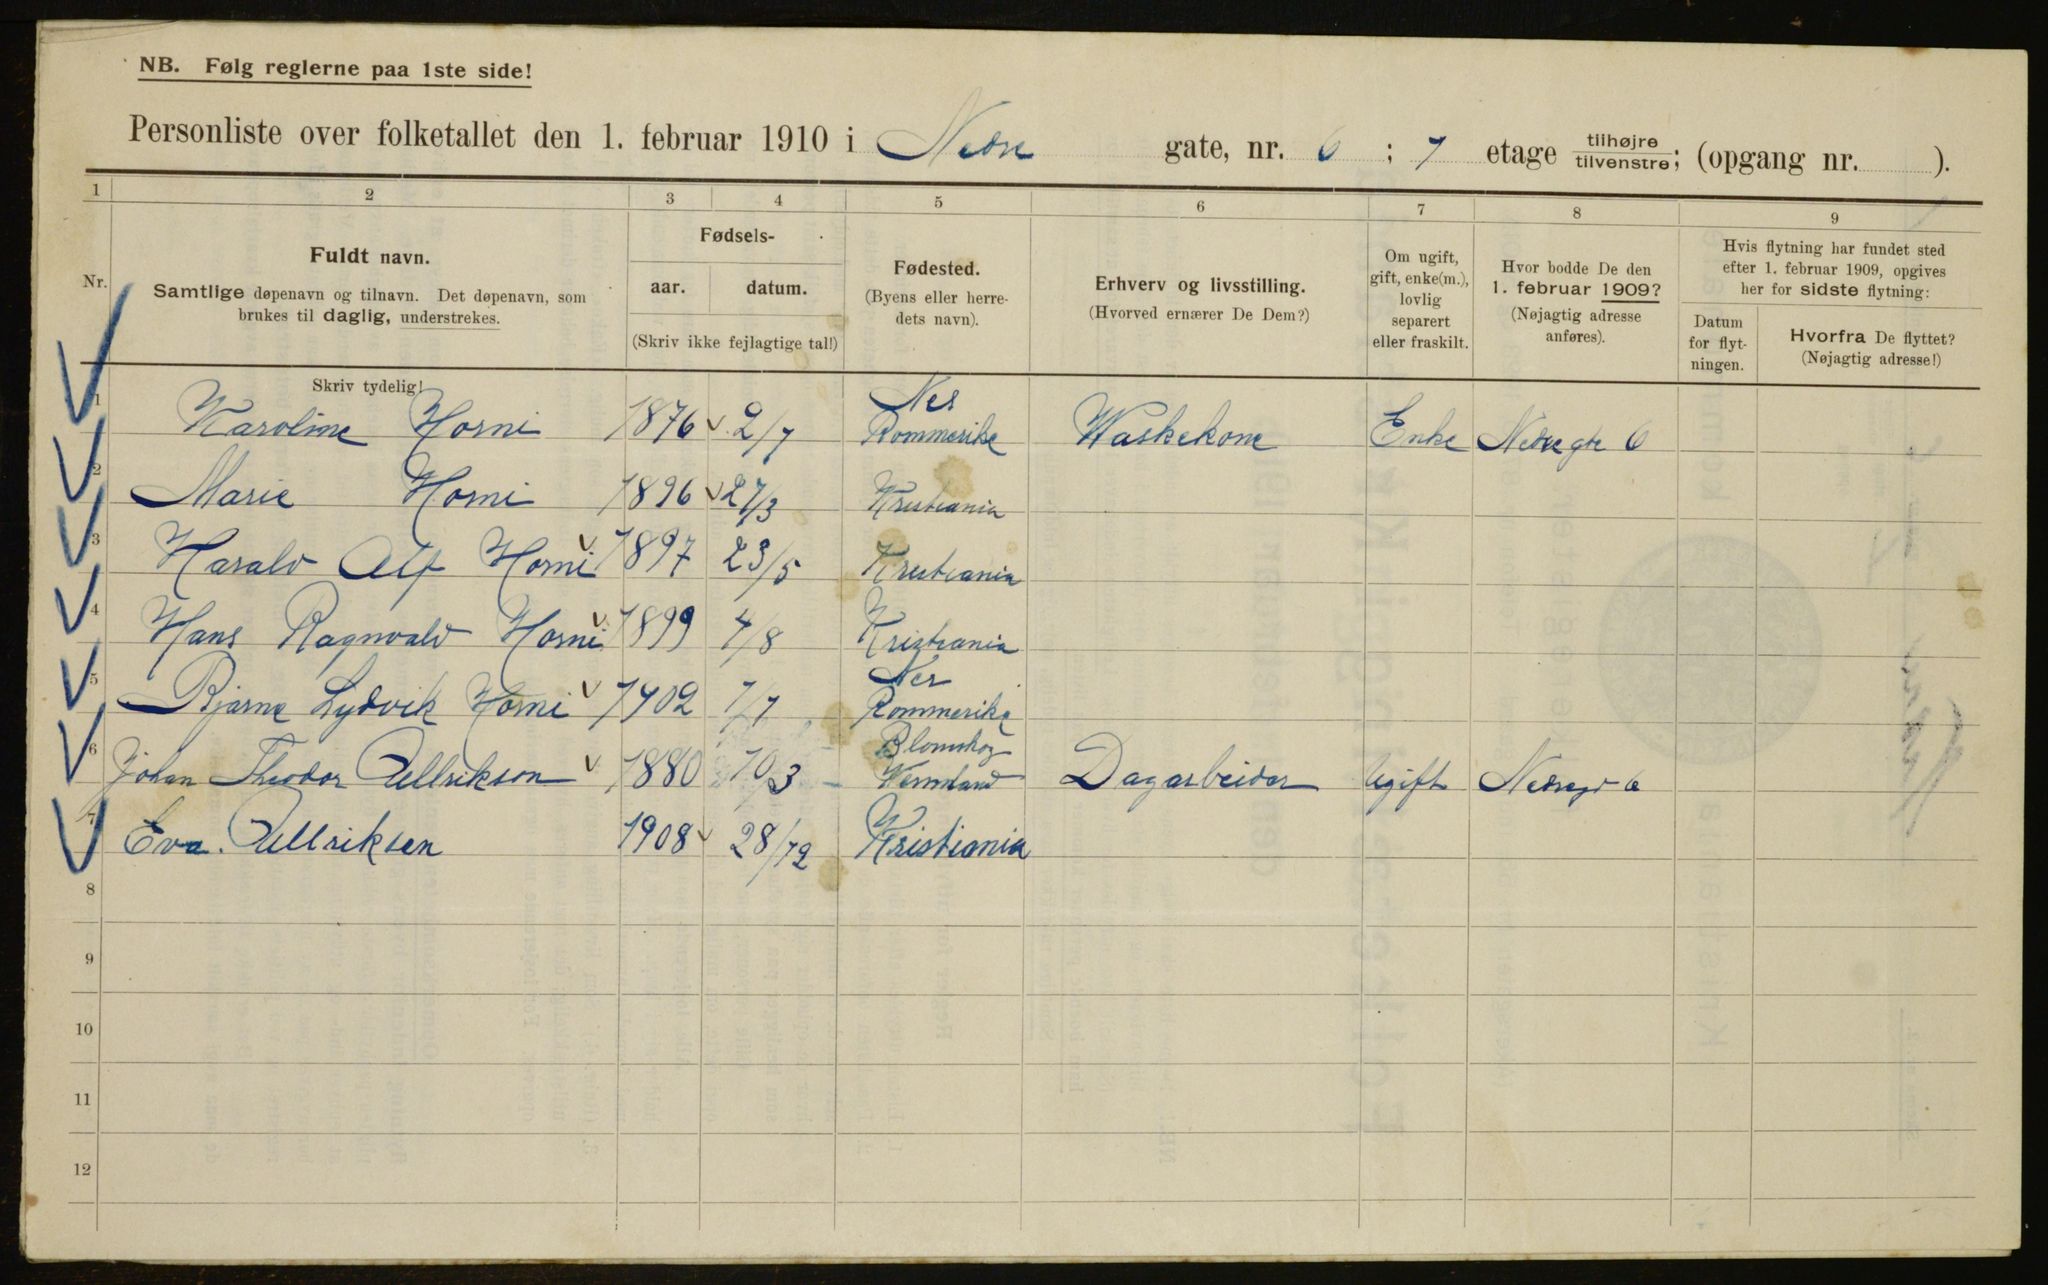 NB. Følg reglerne paa 1ste side!
Personliste over folketallet den 1. februar 1910 i Nedre gate, nr. 6 ; 1 etage tilhøjre tilvenstre; (opgang nr. ).
1 2 3 4 5 6 7 8 9
Nr.
Fuldt navn.
Samtlige døpenavn og tilnavn. Det døpenavn, som
brukes til daglig, understrekes.
Skriv tydelig!
Fødsels-
aar. datum.
(Skriv ikke fejlagtige tal!)
Fødested.
(Byens eller herre-
dets navn).
Erhverv og livsstilling.
(Hvorved ernærer De Dem?)
Om ugift,
gift, enke(m.),
lovlig
separert
eller fraskilt.
Hvor bodde De den
1. februar 1909?
(Nøjagtig adresse
anføres).
Hvis flytning har fundet sted
efter 1. februar 1909, opgives
her for sidste flytning:
Datum
for flyt-
ningen.
Hvorfra De flyttet?
(Nøjagtig adresse!)
Nes
1 Karoline Horni 1876 2/7 Rommerike Waskekone Enke Nedregte 6
2 Marie Horni 1896 27/3 Kristiania
3 Harald Alf Horni 1897 23/5 Kristiania
4 Hans Ragnvald Horni 1899 4/8 Kristiania
Nes
5 Bjarne Lydvik Horni 1902 1/7 Rommerike
Blomskog
6 Johan Theodor Ullrikson 1880 10/3 Vermland Dagarbeider Ugift Nedregt 6
7 Eva Ullriksen 1908 28/12 Kristiania
8
9
10
11
12